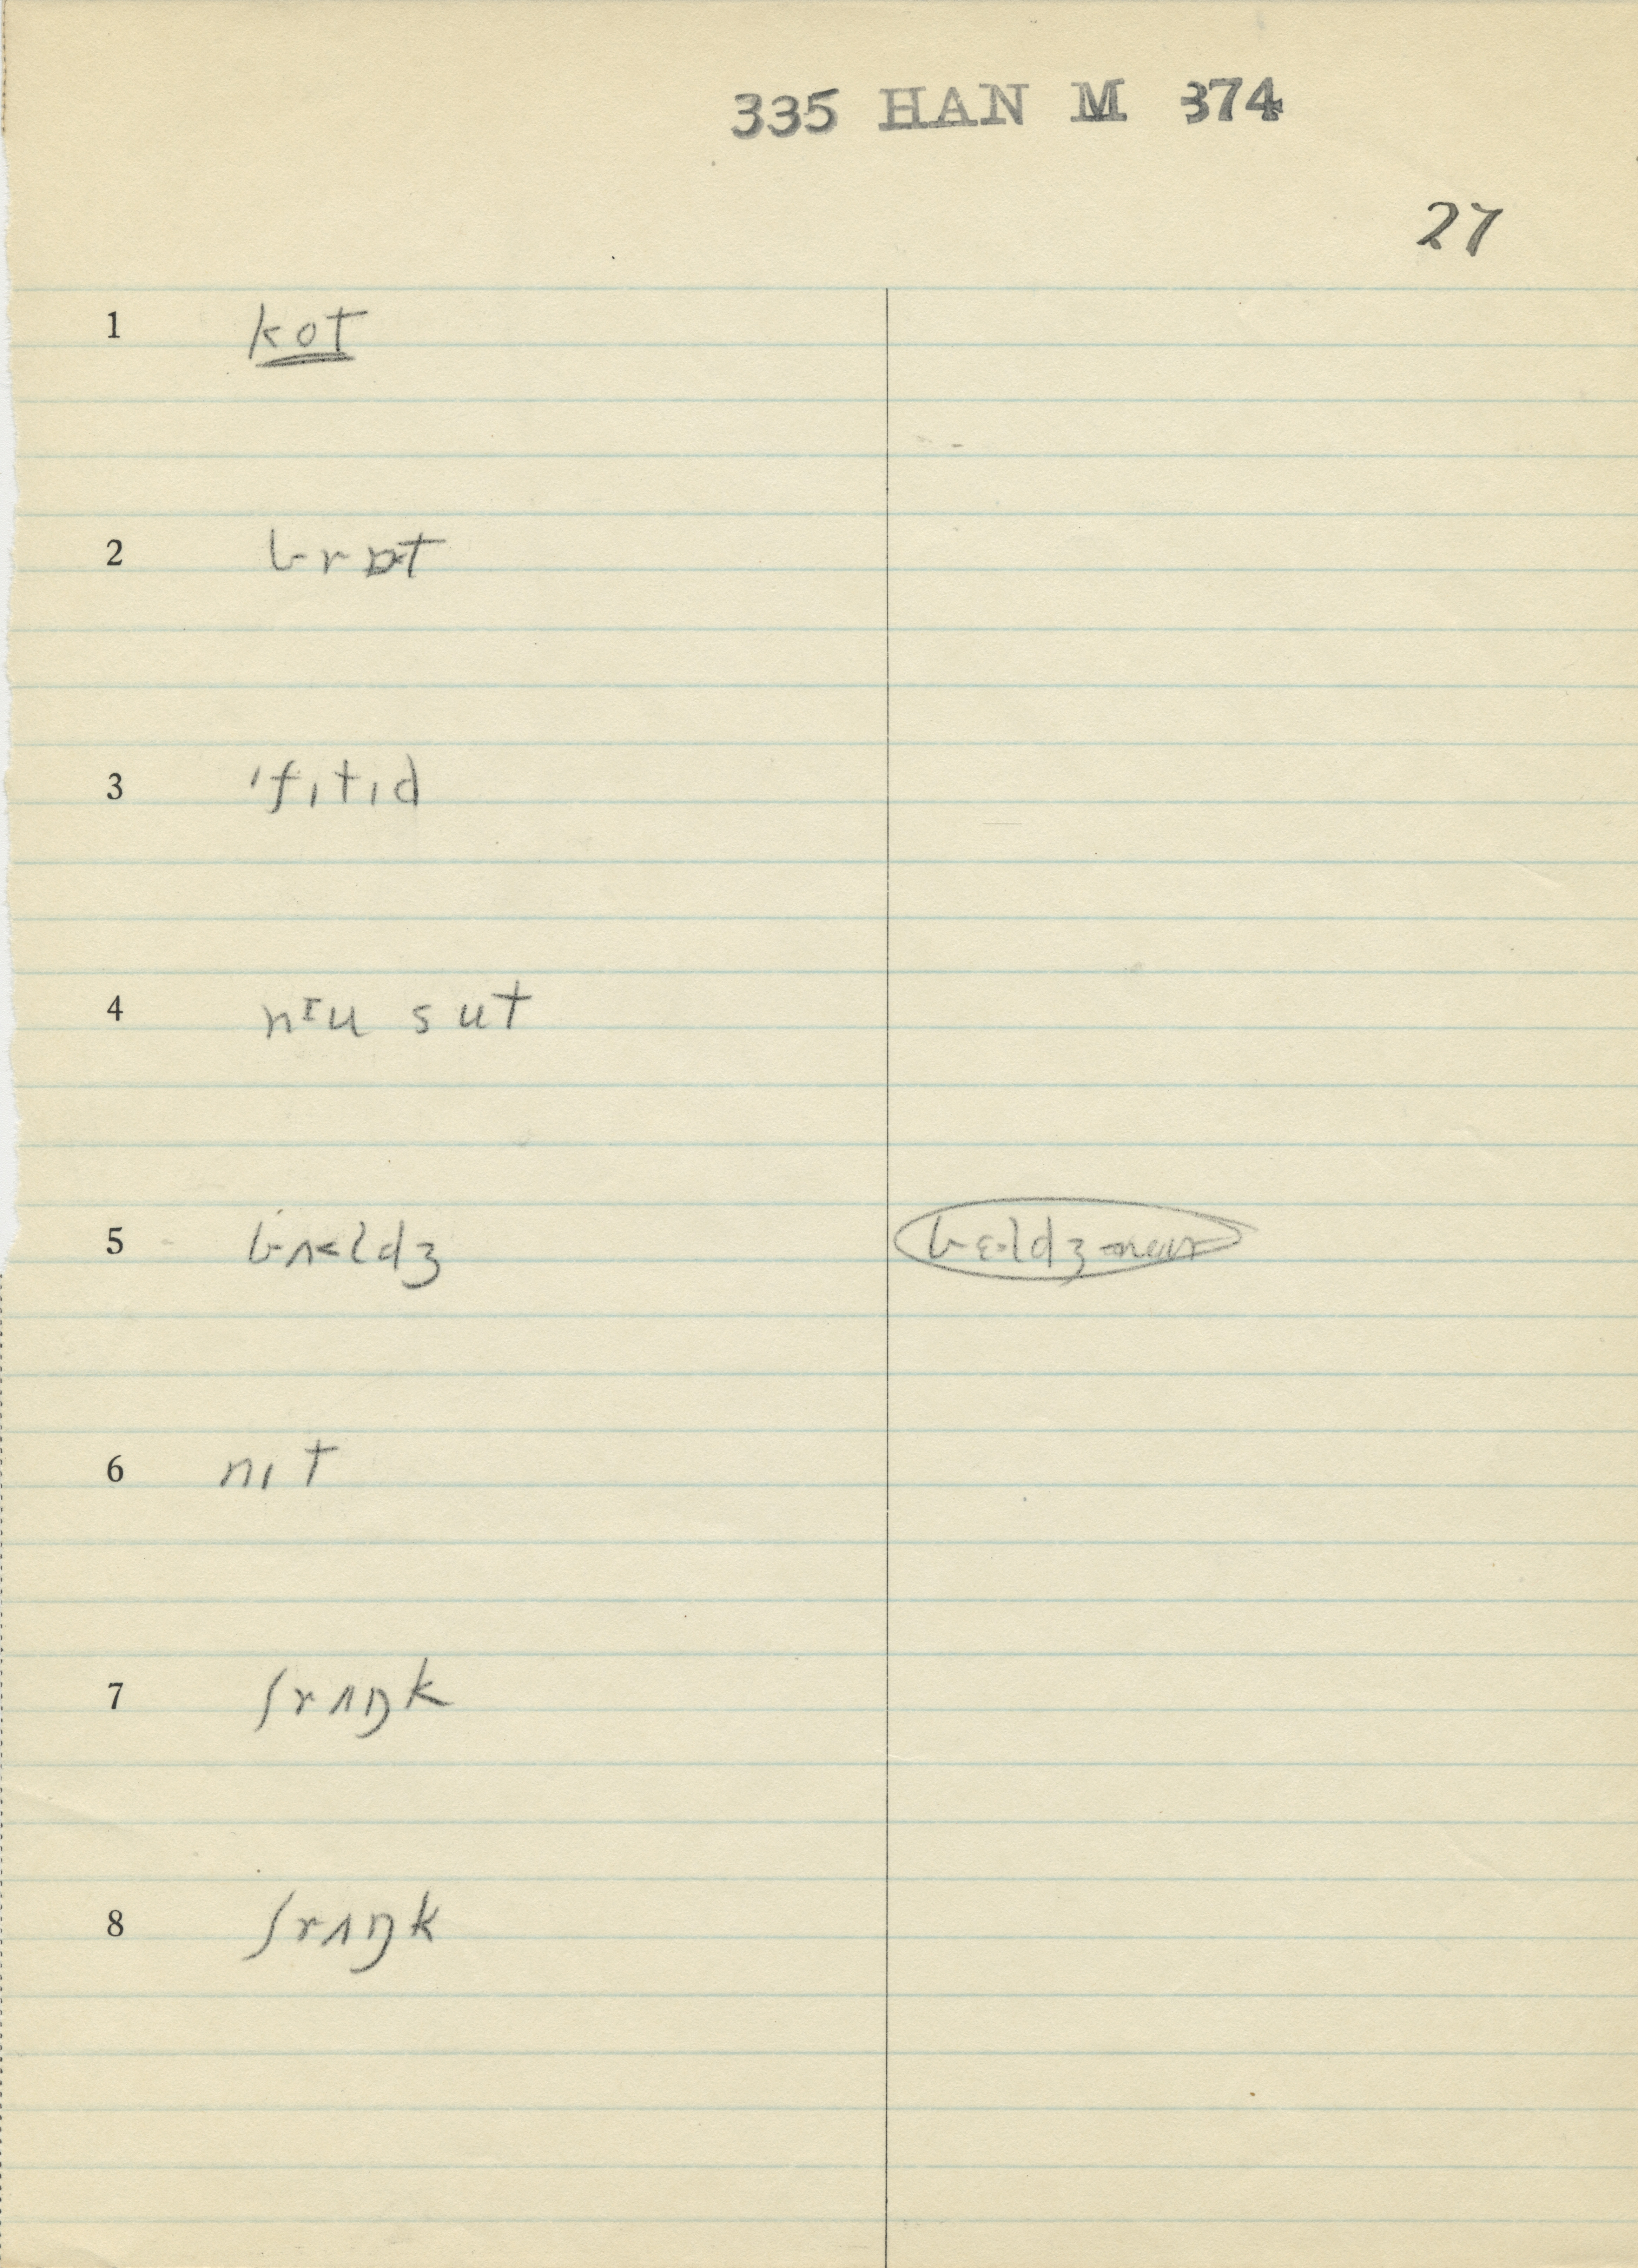 335 HAN M 374
27
1 kot
2 brɒt
3 'fɩtɩd
4 nɪu sut
5 bʌ<ldʒ
6 nɩt
7 ʃrʌŋk
8 ʃrʌŋk